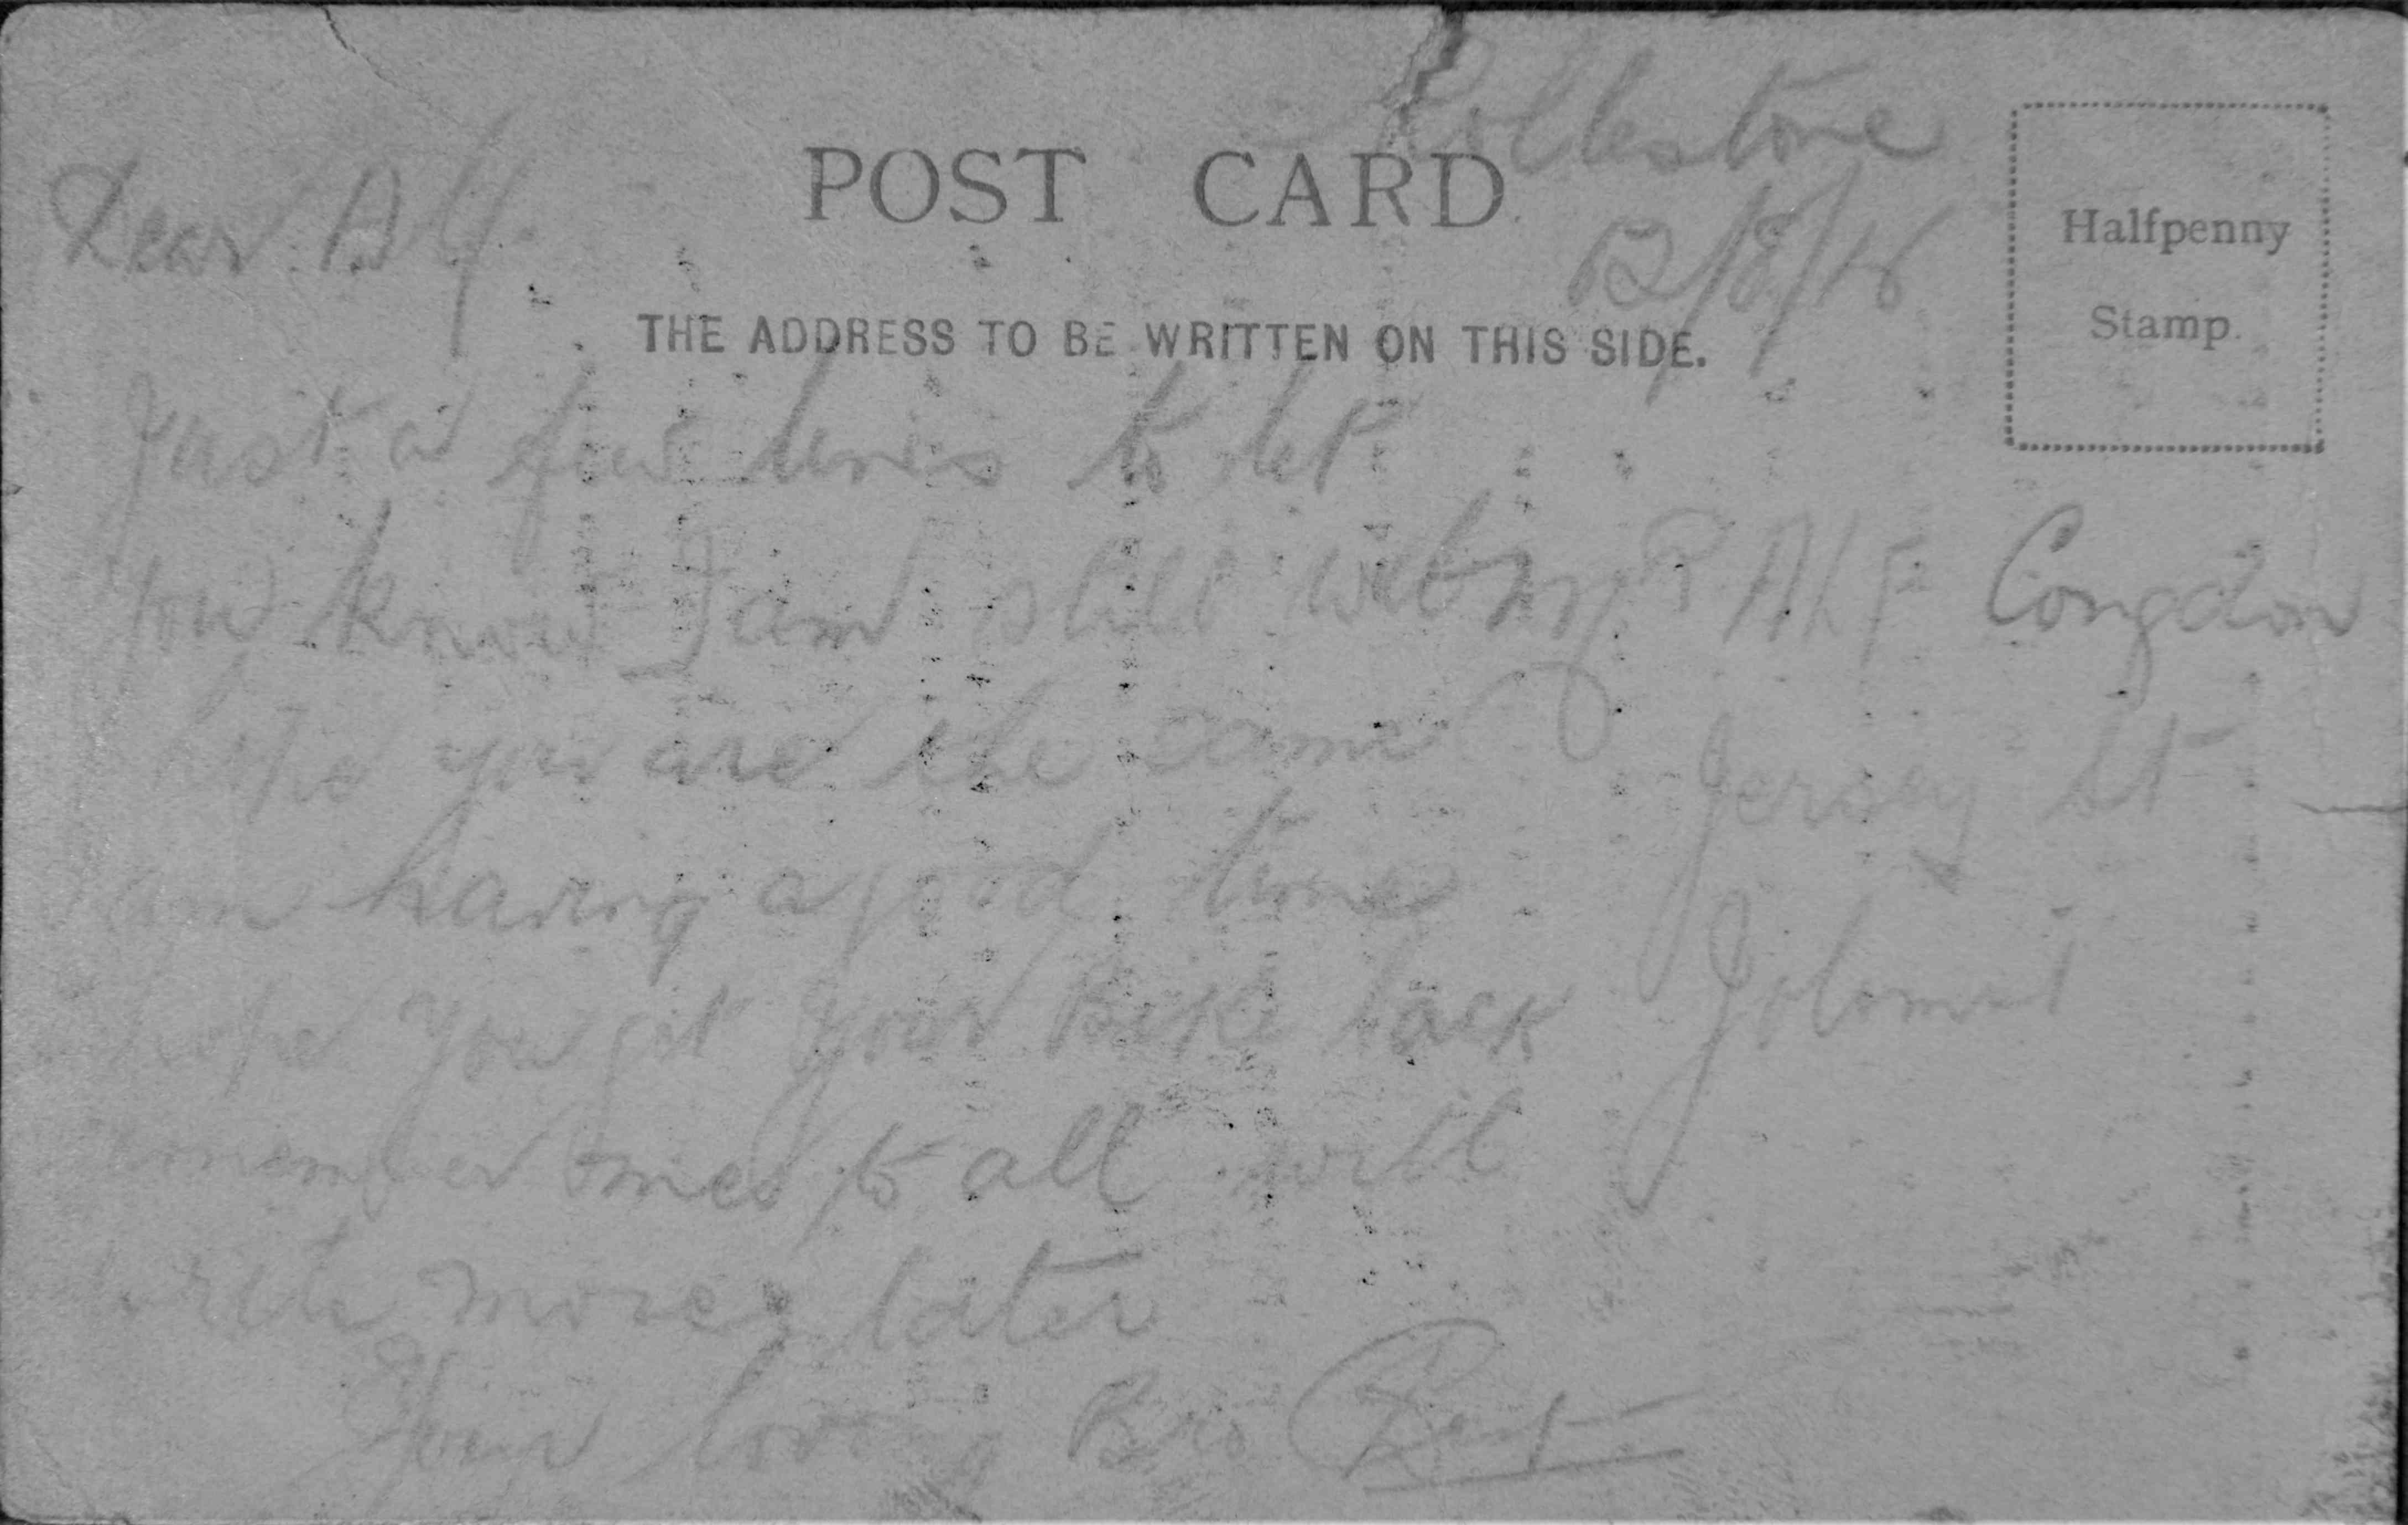 Rollestone
POST CARD
Dear Alf.
12/8/16
Halfpenny
Stamp.
THE ADDRESS TO BE WRITTEN ON THIS SIDE.
Just a few lines to let
you know I am still well
hope you are the same
am having a good time
hope you got your Bike back
remember me to all will
write more later
Your loving Bro
Mr Alf Congdon
Jersey St
Jolimont